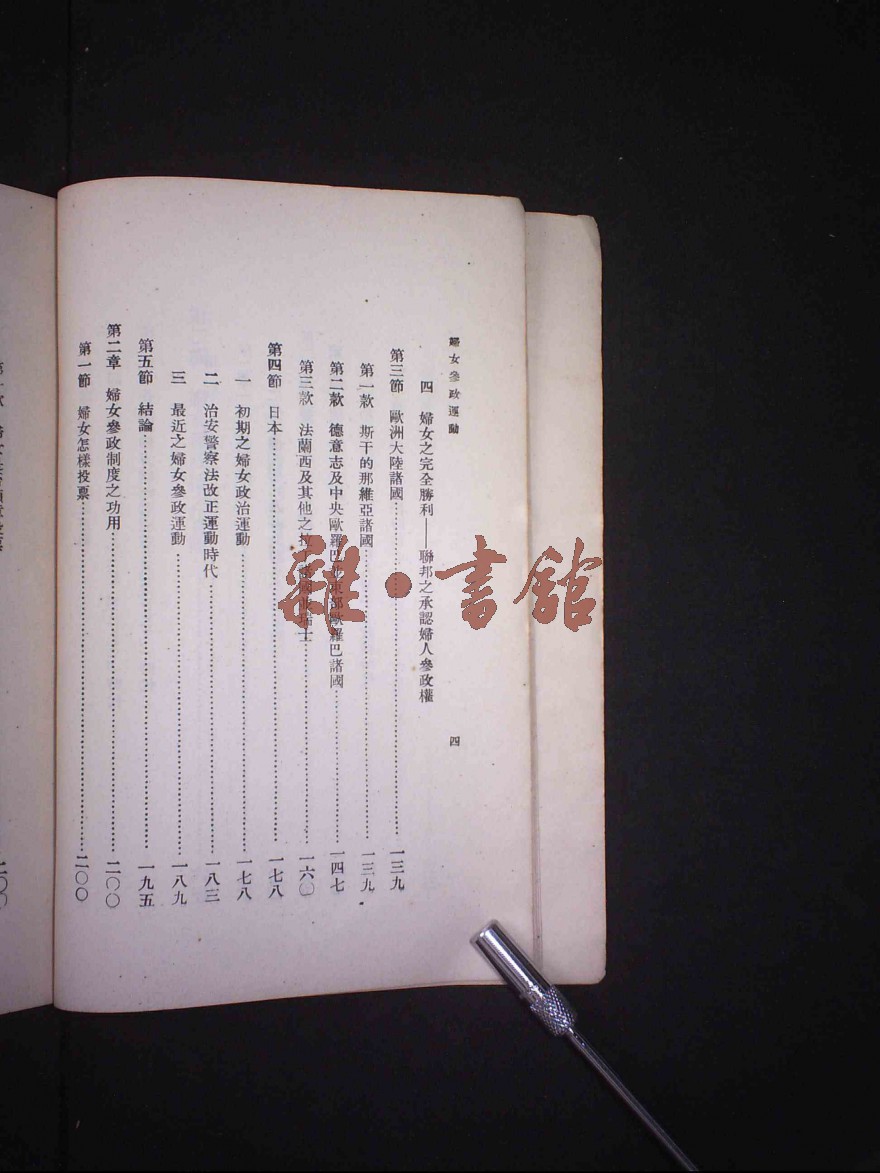 婦女參政運動 四
四 婦女之完全勝利——聯邦之承認婦人參政權
第三節 歐洲大陸諸國……一三九
第一款 斯干的那維亞諸國……一三九
第二款 德意志及中央歐羅巴並東部歐羅巴諸國……一四七
第三款 法蘭西及其他之拉丁諸國並瑞士……一六〇
第四節 日本……一七八
一 初期之婦女政治運動……一七八
二 治安警察法改正運動時代……一八三
三 最近之婦女參政運動……一八九
第五節 結論……一九五
第二章 婦女參政制度之功用……二〇〇
第一節 婦女怎樣投票……二〇〇
二〇〇
雜·書館